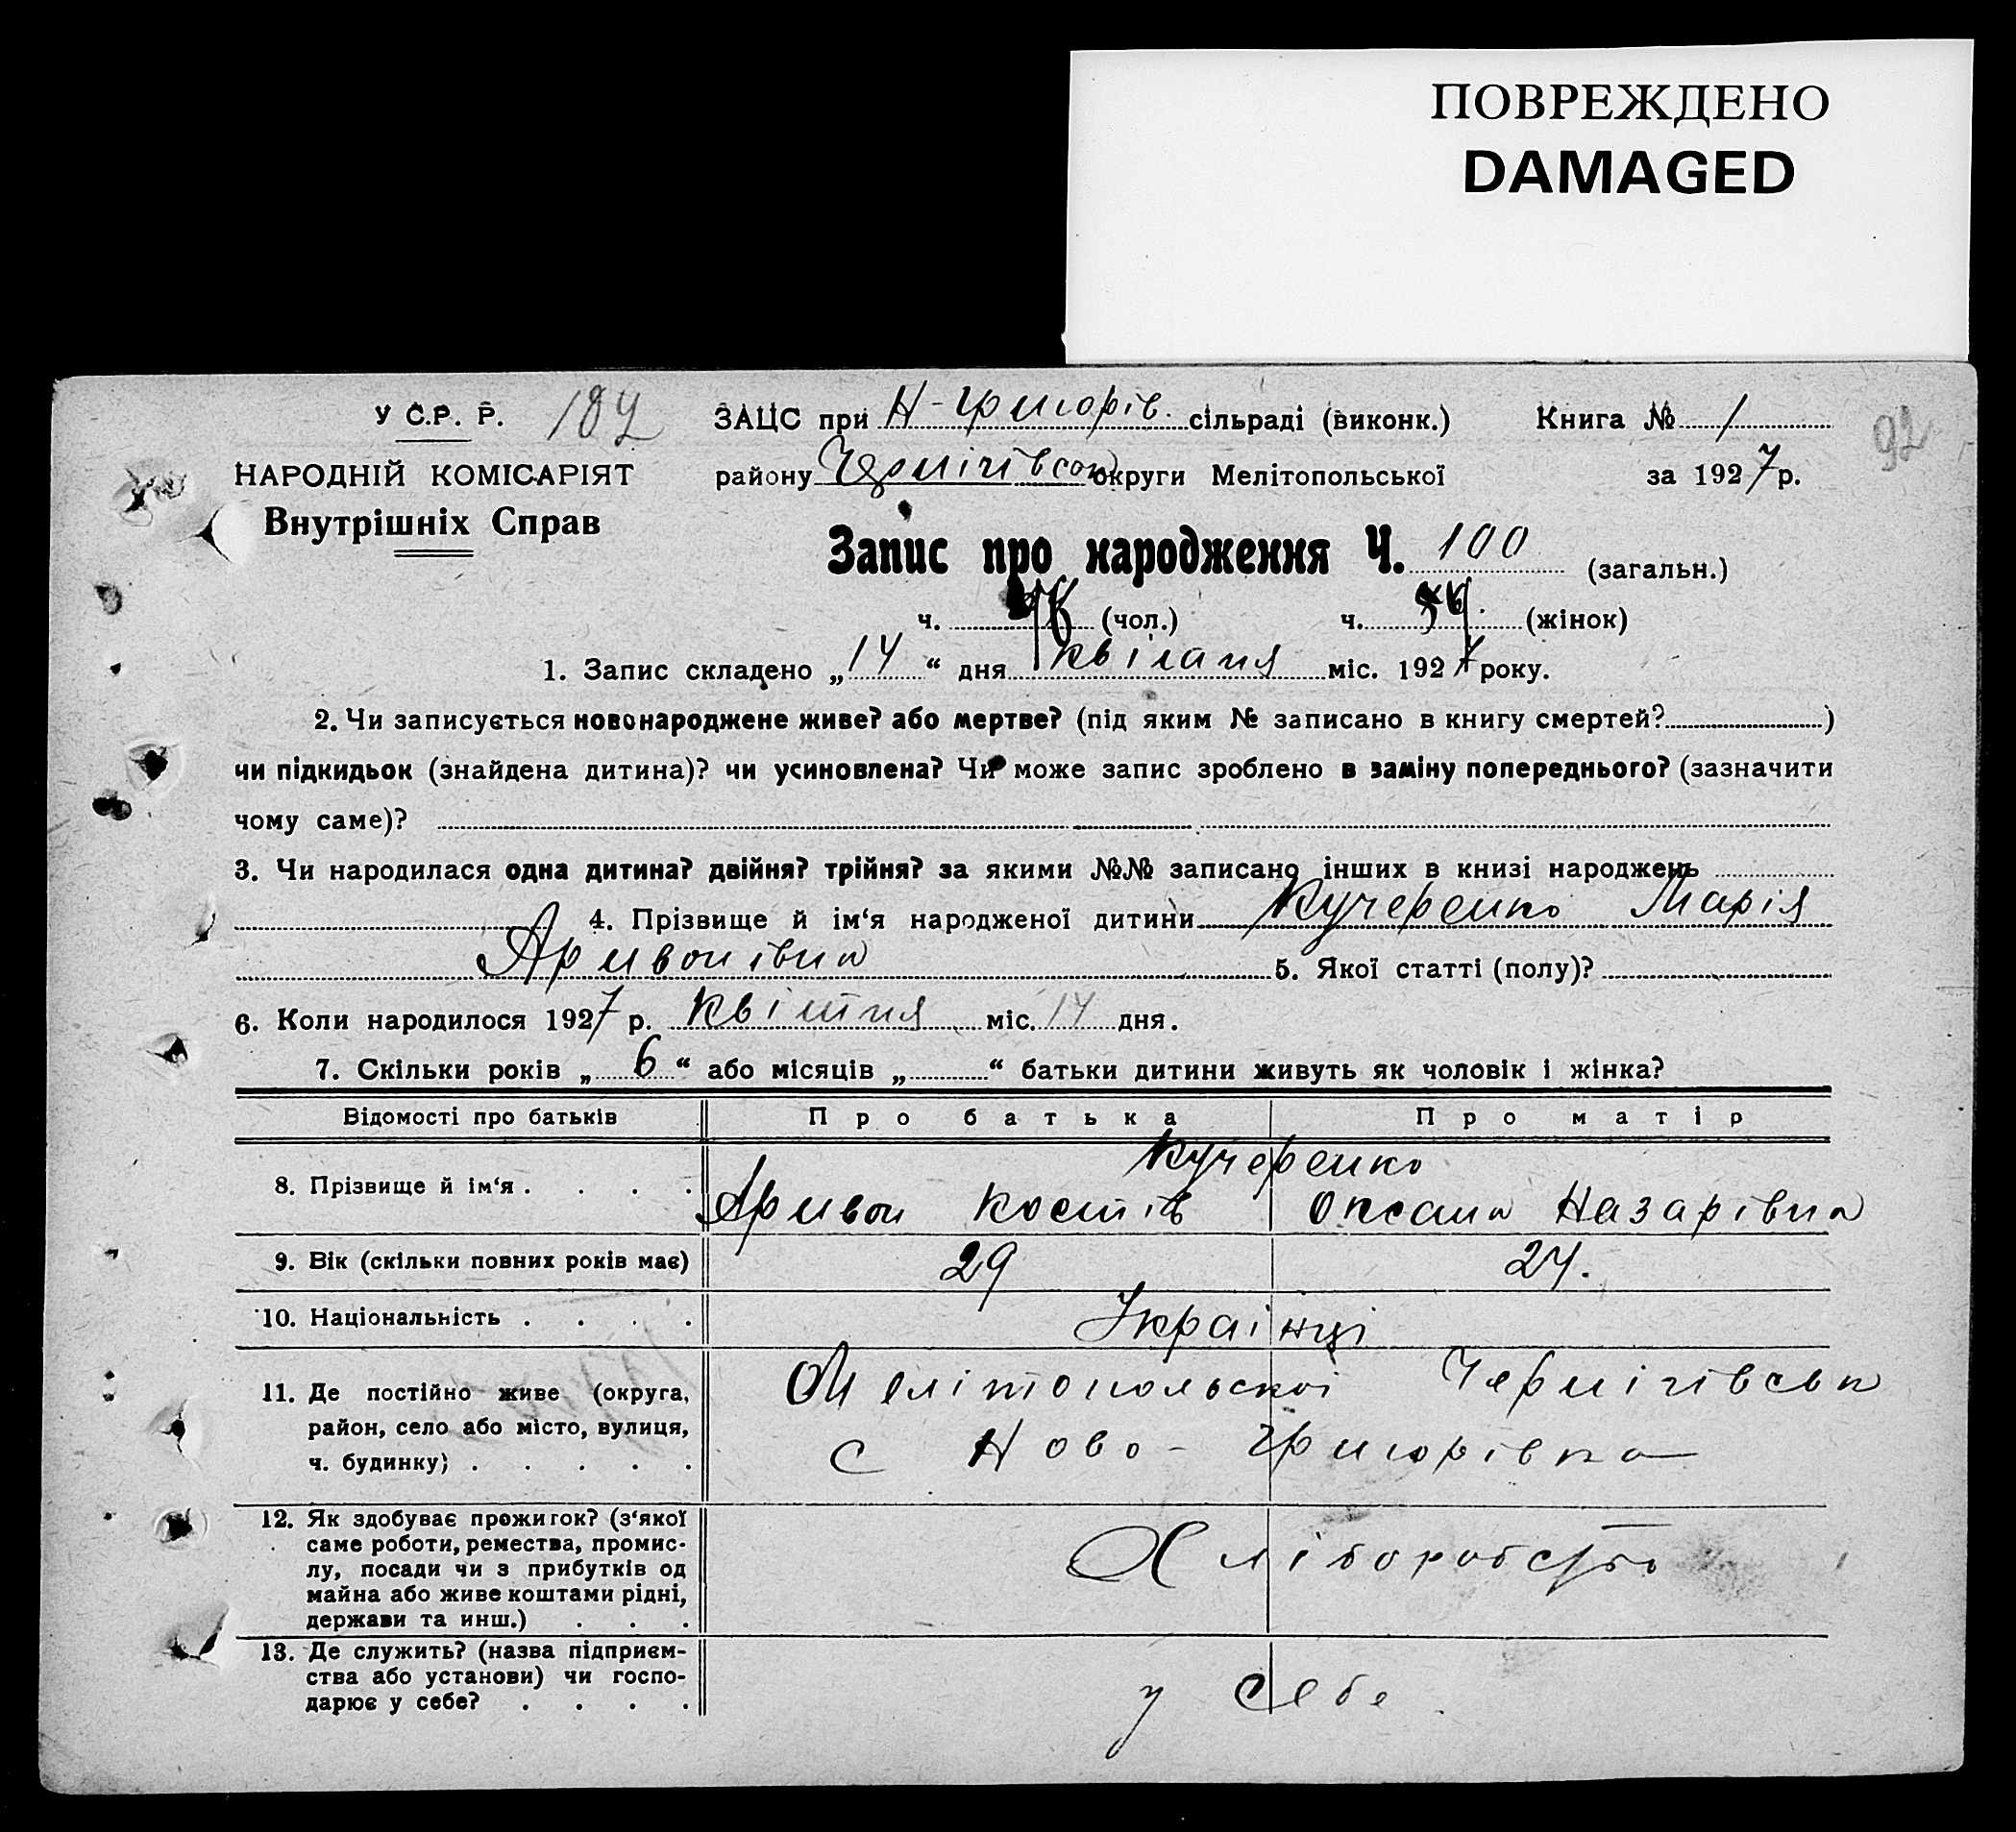 ПОВРЕЖДЕНО
DAMAGED
У С.Р. Р. 189 ЗАЦС при Н-Григорів. сільраді (виконк.) Книга № 1 92
НАРОДНІЙ КОМІСАРІЯТ району Чернігівськ округи Мелітопольської за 1927 р.
Внутрішніх Справ
Запис про народження Ч. 100 (загальн.)
ч. (чол.) ч. (жінок)
1. Запис складено „14“ дня квітня міс. 1927 року.
2. Чи записується новонароджене живе? або мертве? (під яким № записано в книгу смертей? )
чи підкидьок (знайдена дитина)? чи усиновлена? Чи може запис зроблено в заміну попереднього? (зазначити
чому саме)?
3. Чи народилася одна дитина? двійня? трійня? за якими №№ записано інших в книзі народжень
4. Прізвище й ім‘я народженої дитини Кучеренко Марія
Аривонівна 5. Якої статті (полу)?
6. Коли народилося 1927 р. квітня міс. 14 дня.
7. Скільки років „6“ або місяців „ “ батьки дитини живуть як чоловік і жінка?
Відомості про батьків Про батька Про матір
Кучеренко
8. Прізвище й ім‘я . . . . Аривон Костів Оксана Назарівна
9. Вік (скільки повних років має) 29 24.
10. Національність . . . . Українці
11. Де постійно живе (округа, Мелітопольскої Чернігівськ
район, село або місто, вулиця,
ч. будинку) . . . . . с Ново-Григорівка
12. Як здобуває прожиток? (з‘якої
саме роботи, ремества, промис-
лу, посади чи з прибутків од Хліборобство
майна або живе коштами рідні,
держави та инш.) . . .
13. Де служить? (назва підприєм-
ства або установи) чи госпо- у себе.
дарює у себе? . . . .